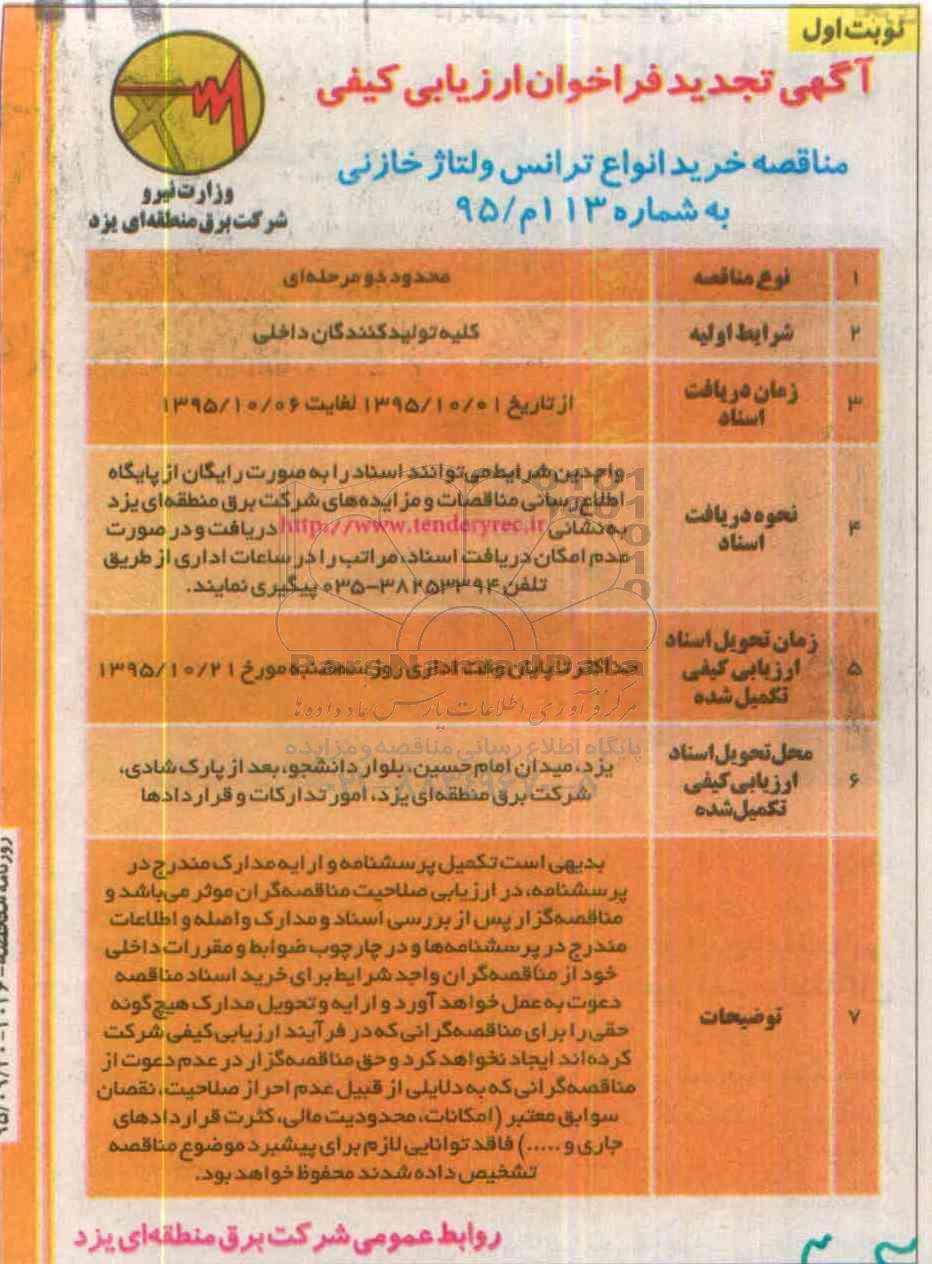 نوبت اول
آگهی تجدید فراخوان ارزیابی کیفی
مناقصه خرید انواع ترانس ولتاژ خازنی
به شماره ۱۱۳م/۹۵
وزارت نیرو
شرکت برق منطقه‌ای یزد
۱ نوع مناقصه محدود دو مرحله‌ای
۲ شرایط اولیه کلیه تولیدکنندگان داخلی
۳ زمان دریافت
اسناد
از تاریخ ۱۳۹۵/۱۰/۰۱ لغایت ۱۳۹۵/۱۰/۰۶
۴ نحوه دریافت
اسناد
واجدین شرایط می‌توانند اسناد را به صورت رایگان از پایگاه
اطلاع رسانی مناقصات و مزایده‌های شرکت برق منطقه‌ای یزد
به نشانی http://www.tenderyrec.ir دریافت و در صورت
عدم امکان دریافت اسناد، مراتب را در ساعات اداری از طریق
تلفن ۳۸۲۵۳۳۹۴-۰۳۵ پیگیری نمایند.
۵ زمان تحویل اسناد
ارزیابی کیفی
تکمیل شده
حداکثر تا پایان وقت اداری روز سه‌شنبه مورخ ۱۳۹۵/۱۰/۲۱
مرکز فرآوری اطلاعات پارس نماد داده‌ها
پایگاه اطلاع رسانی مناقصه و مزایده
۶ محل تحویل اسناد
ارزیابی کیفی
تکمیل شده
یزد، میدان امام حسین، بلوار دانشجو، بعد از پارک شادی،
شرکت برق منطقه‌ای یزد، امور تدارکات و قراردادها
۷ توضیحات
بدیهی است تکمیل پرسشنامه و ارایه مدارک مندرج در
پرسشنامه، در ارزیابی صلاحیت مناقصه‌گران موثر می‌باشد و
مناقصه‌گزار پس از بررسی اسناد و مدارک واصله و اطلاعات
مندرج در پرسشنامه‌ها و در چارچوب ضوابط و مقررات داخلی
خود از مناقصه‌گران واجد شرایط برای خرید اسناد مناقصه
دعوت به عمل خواهد آورد و ارایه و تحویل مدارک هیچ‌گونه
حقی را برای مناقصه‌گرانی که در فرآیند ارزیابی کیفی شرکت
کرده‌اند ایجاد نخواهد کرد و حق مناقصه‌گزار در عدم دعوت از
مناقصه‌گرانی که به دلایلی از قبیل عدم احراز صلاحیت، نقصان
سوابق معتبر (امکانات، محدودیت مالی، کثرت قراردادهای
جاری و .....) فاقد توانایی لازم برای پیشبرد موضوع مناقصه
تشخیص داده شدند محفوظ خواهد بود.
روابط عمومی شرکت برق منطقه‌ای یزد